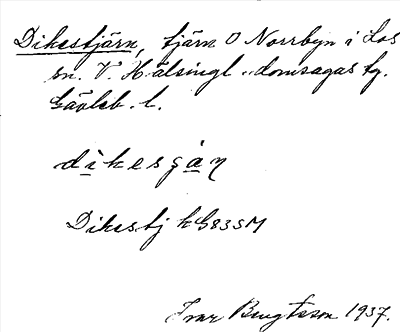 Dikestjärn, tjärn O Norrbyn i Los
sn. V. Hälsingl. domsagas tg.
Gävleb. l.
dikesgàn
Dikestj kG83SM
Ivar Bengtsson 1937.